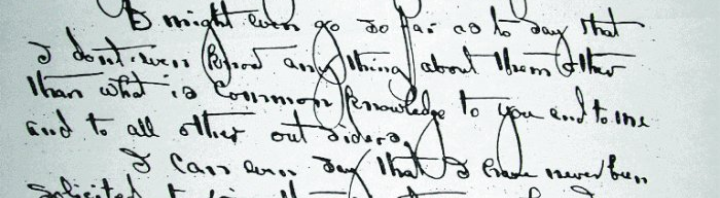 I might even go so far as to say that
I dont even know any thing about them other
than what is common knowledge to you and to me
and to all other out siders.
I can even say that I have never been
solicited to